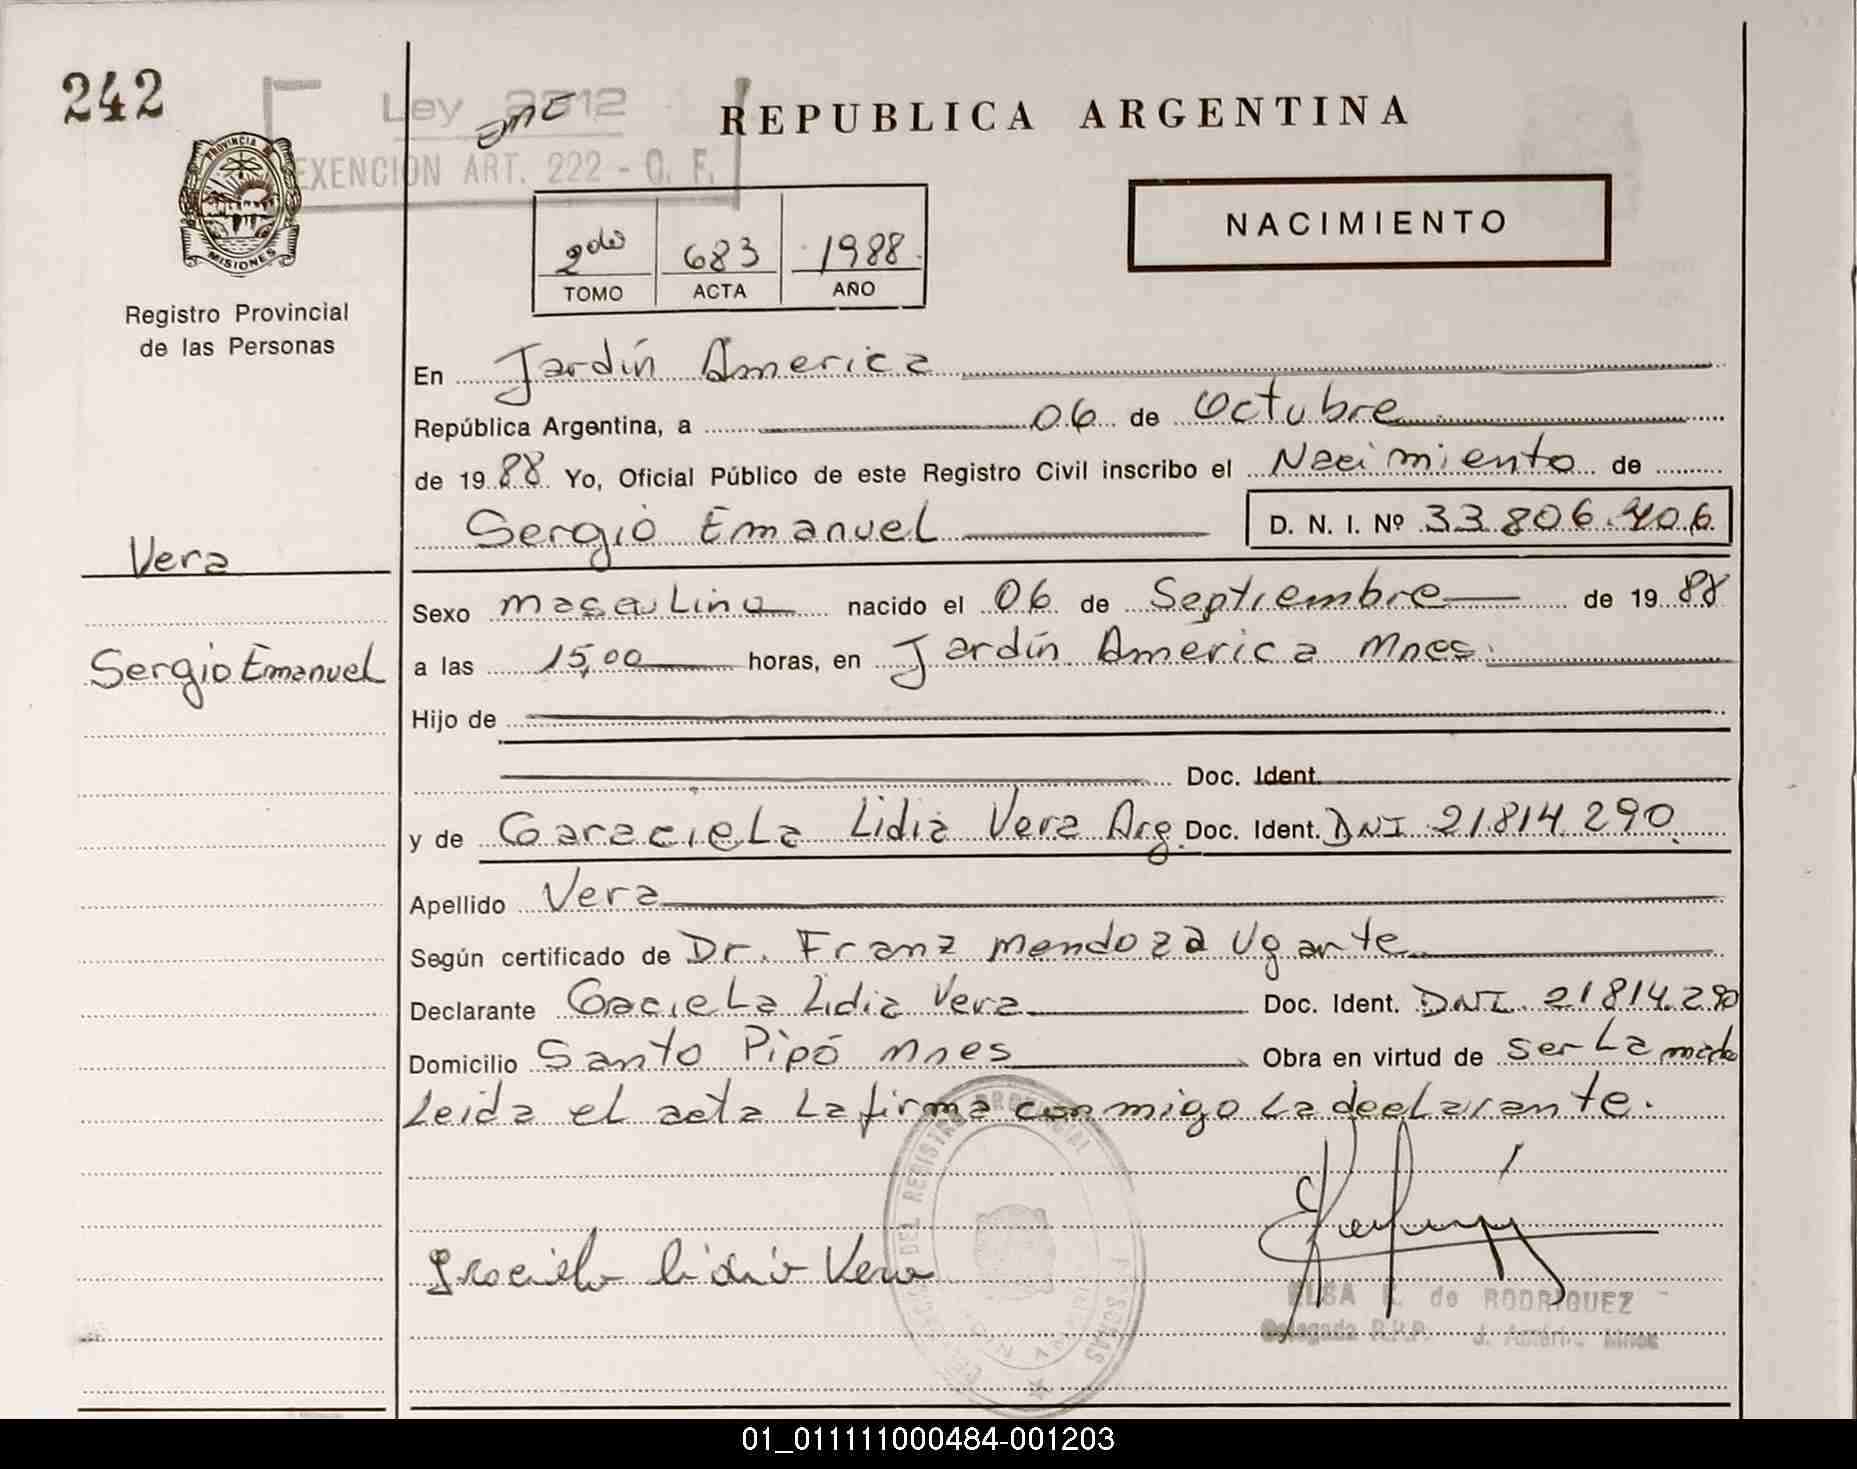 242
Ley 2312
EXENCION ART. 222 - C. F.
REPUBLICA ARGENTINA
PROVINCIA DE
MISIONES
Registro Provincial
de las Personas
2do 683 1988
TOMO ACTA AÑO
NACIMIENTO
En Jardín America
República Argentina, a 06 de Octubre
de 1988 Yo, Oficial Público de este Registro Civil inscribo el Nacimiento de
Sergio Emanuel D. N. I. Nº 33.806.406
Vera
Sergio Emanuel
Sexo masculino nacido el 06 de Septiembre de 1988
a las 15,00 horas, en Jardín America Mnes.
Hijo de
Doc. Ident.
y de Garaciela Lidia Vera Arg. Doc. Ident. DNI 21814.290
Apellido Vera
Según certificado de Dr. Franz Mendoza Ugarte
Declarante Gaciela Lidia Vera Doc. Ident. DNI. 21814.290
Domicilio Santo Pipó Mnes Obra en virtud de ser La madre
Leida el acta La firma conmigo La declarante.
Graciela Lidia Vera
DEL REGISTRO PROVINCIAL
PERSONAS
ELSA E. de RODRIGUEZ
Delegada R.P.P. J. Améri. Mnes
01_011111000484-001203